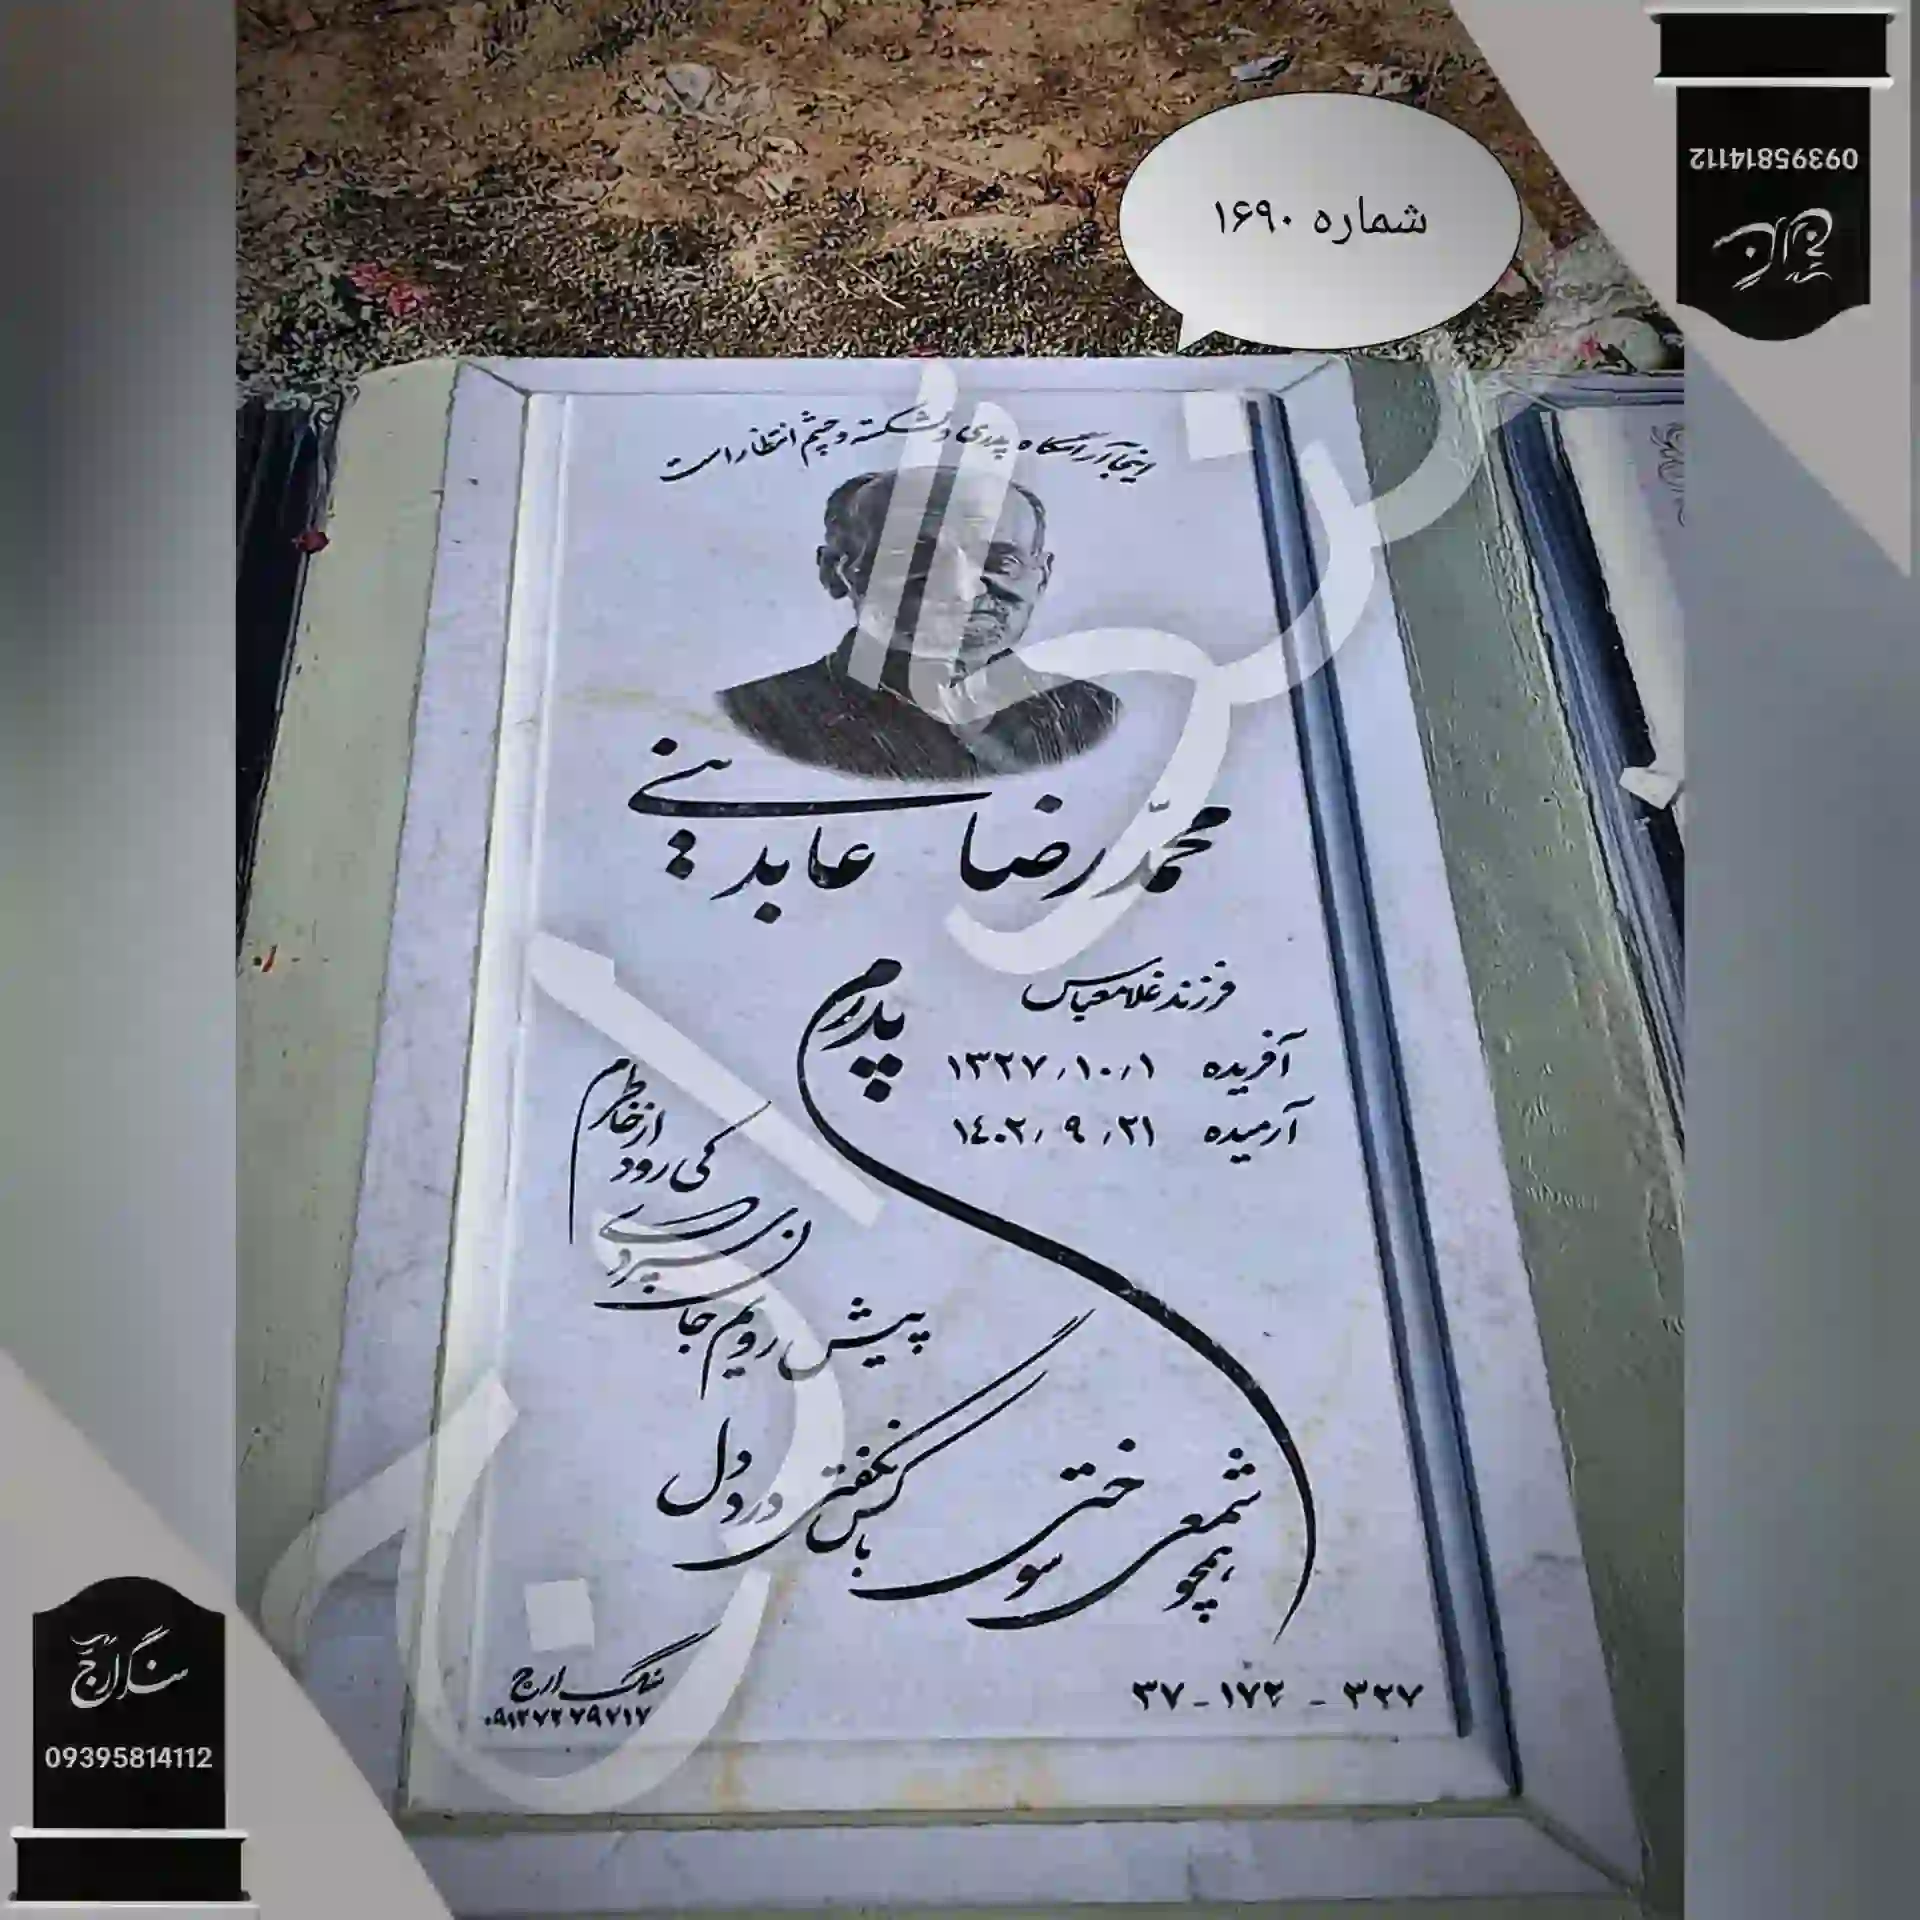 09395814112
شماره ۱۶۹۰
اینجا آرامگاه پدری دلشکسته و چشم انتظار است
محمّدرضا عابدینی
فرزند غلامعباس
آفریده ۱۳۲۷/۱۰/۱
آرمیده ۱۴۰۲/۹/۲۱
پدرم
همچو شمعی سوختی
با کس نگفتی درد دل
پیش رویم جان سپردی
کی رود از خاطرم
۳۲۷ - ۱۷۲ - ۳۷
سنگ ارج
۰۹۱۲۷۲۷۹۷۱۷
سنگ ارج
09395814112